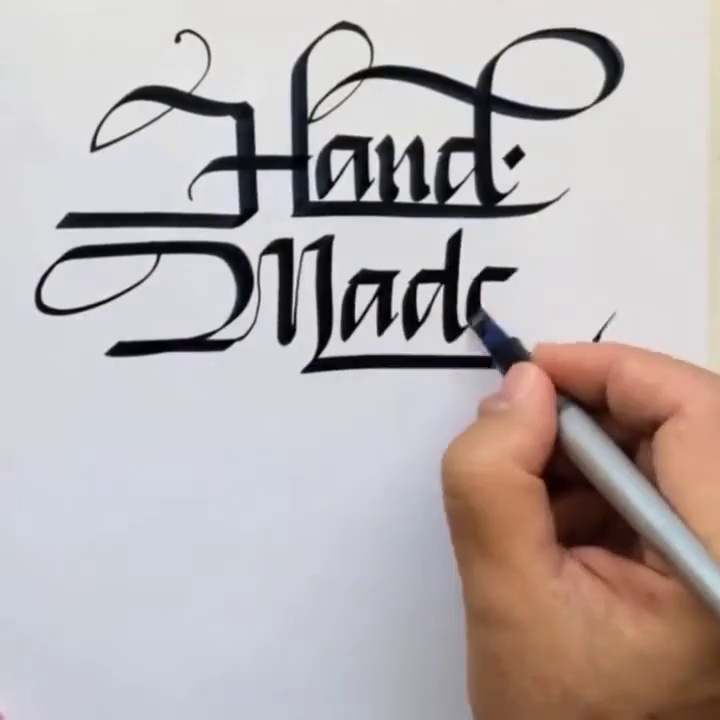 Hand.
Made